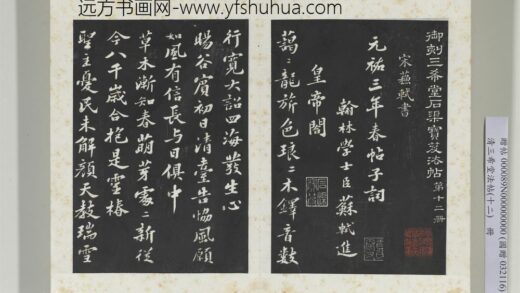 远方书画网-www.yfshuhua.com
御刻三希堂石渠寶笈法帖 第十二冊
宋蘇軾書
元祐三年春帖子詞
翰林學士臣蘇軾進
皇帝閣
藹〻龍旂色琅〻木鐸音數
行寬大詔四海發生心
暘谷賓初日清臺告協風願
如風有信長與日俱中
草木漸知春萌芽處〻新從
今八千歲合抱是靈椿
聖主憂民未解顏天教瑞雪
贈帖 000089N000000000 (國贈 032116)
清三希堂法帖(十二) 冊